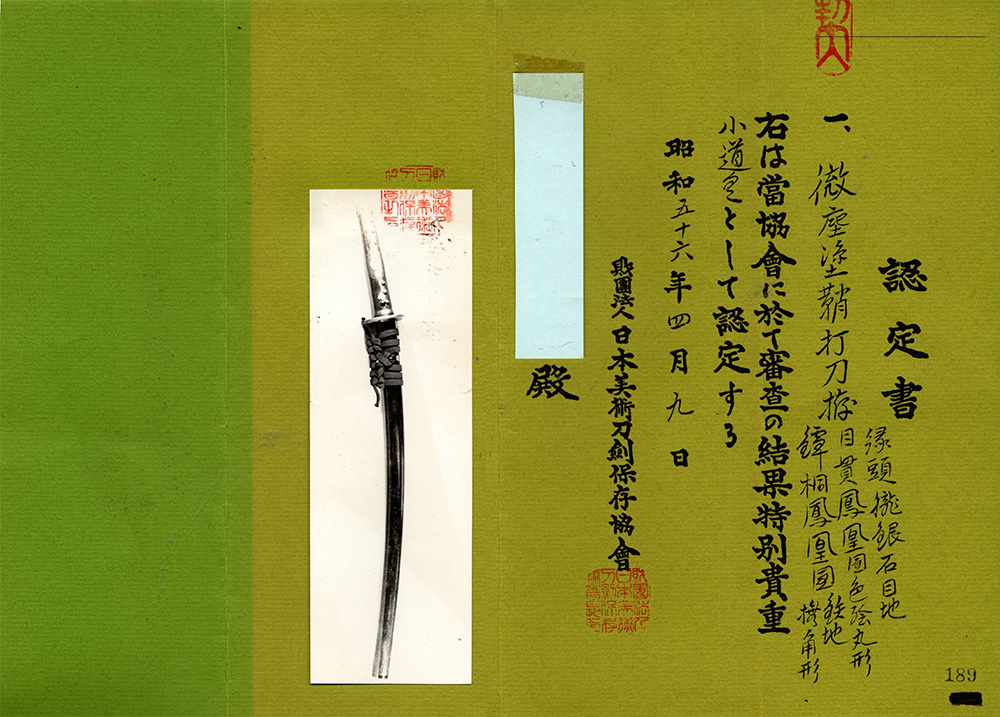 認定書
一、微塵塗鞘打刀拵
縁頭朧銀石目地
目貫鳳凰図色絵丸形
鐔桐鳳凰図鉄地撫角形
右は當協會に於て審査の結果特別貴重
小道具として認定する
昭和五十六年四月九日
財團法人日本美術刀劍保存協會
殿
189